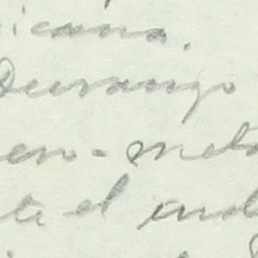 icana.
Durango
en - meta
te el ind